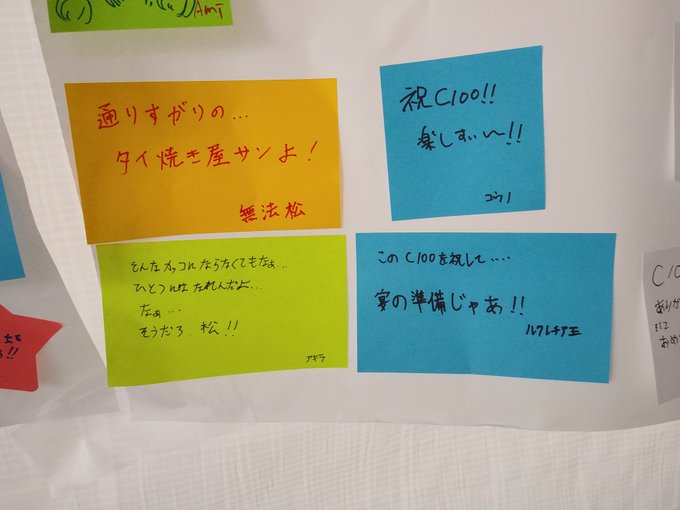 通りすがりの…
タイ焼き屋サンよ！
無法松
祝C100!!
楽しすぃ〜!!
そんなカッコにならなくてもなぁ…
ひとつにはなれんだよ…
なぁ…
そうだろ、松!!
アキラ
このC100を祝して‥‥
宴の準備じゃあ!!
ルクレチア王
C10
ありが
おめ